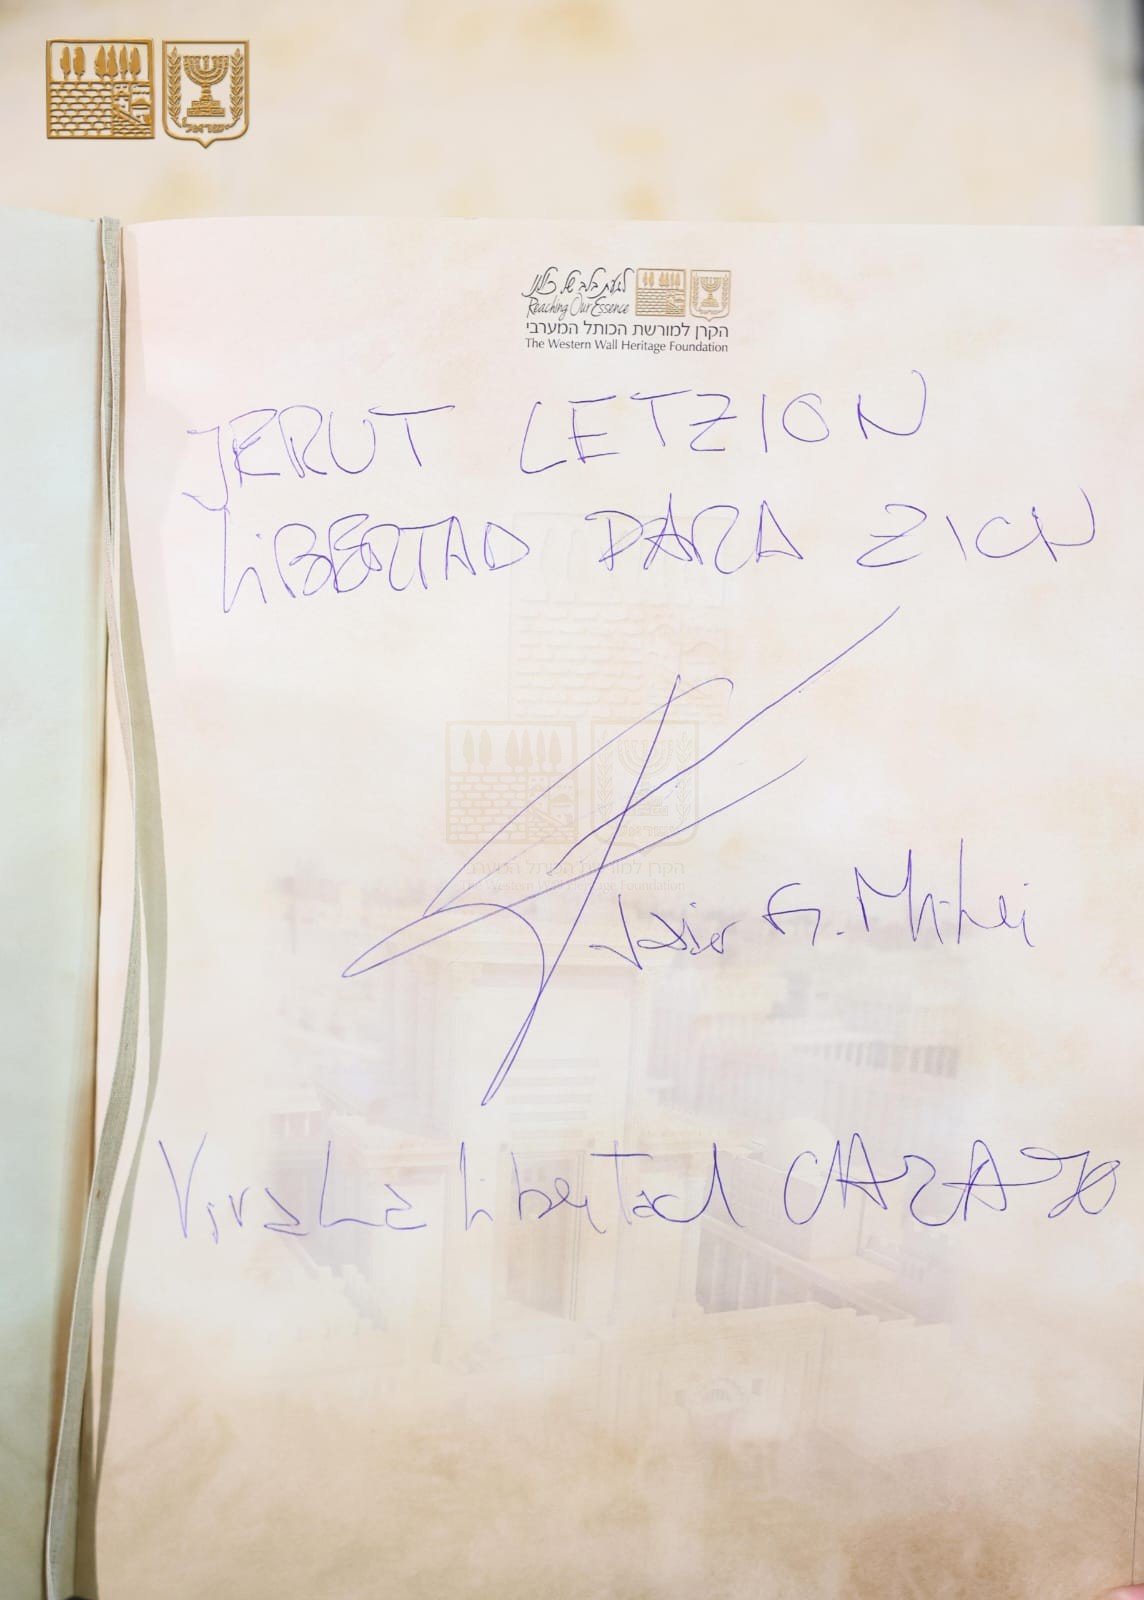 ישראל
לגעת בלב של כולנו
Reaching Our Essence
הקרן למורשת הכותל המערבי
The Western Wall Heritage Foundation
JERUT LETZION
LiBERTAD PARA ZION
הקרן למורשת הכותל המערבי
The Western Wall Heritage Foundation
Javier G. Milei
Viva La Libertad CARAJO